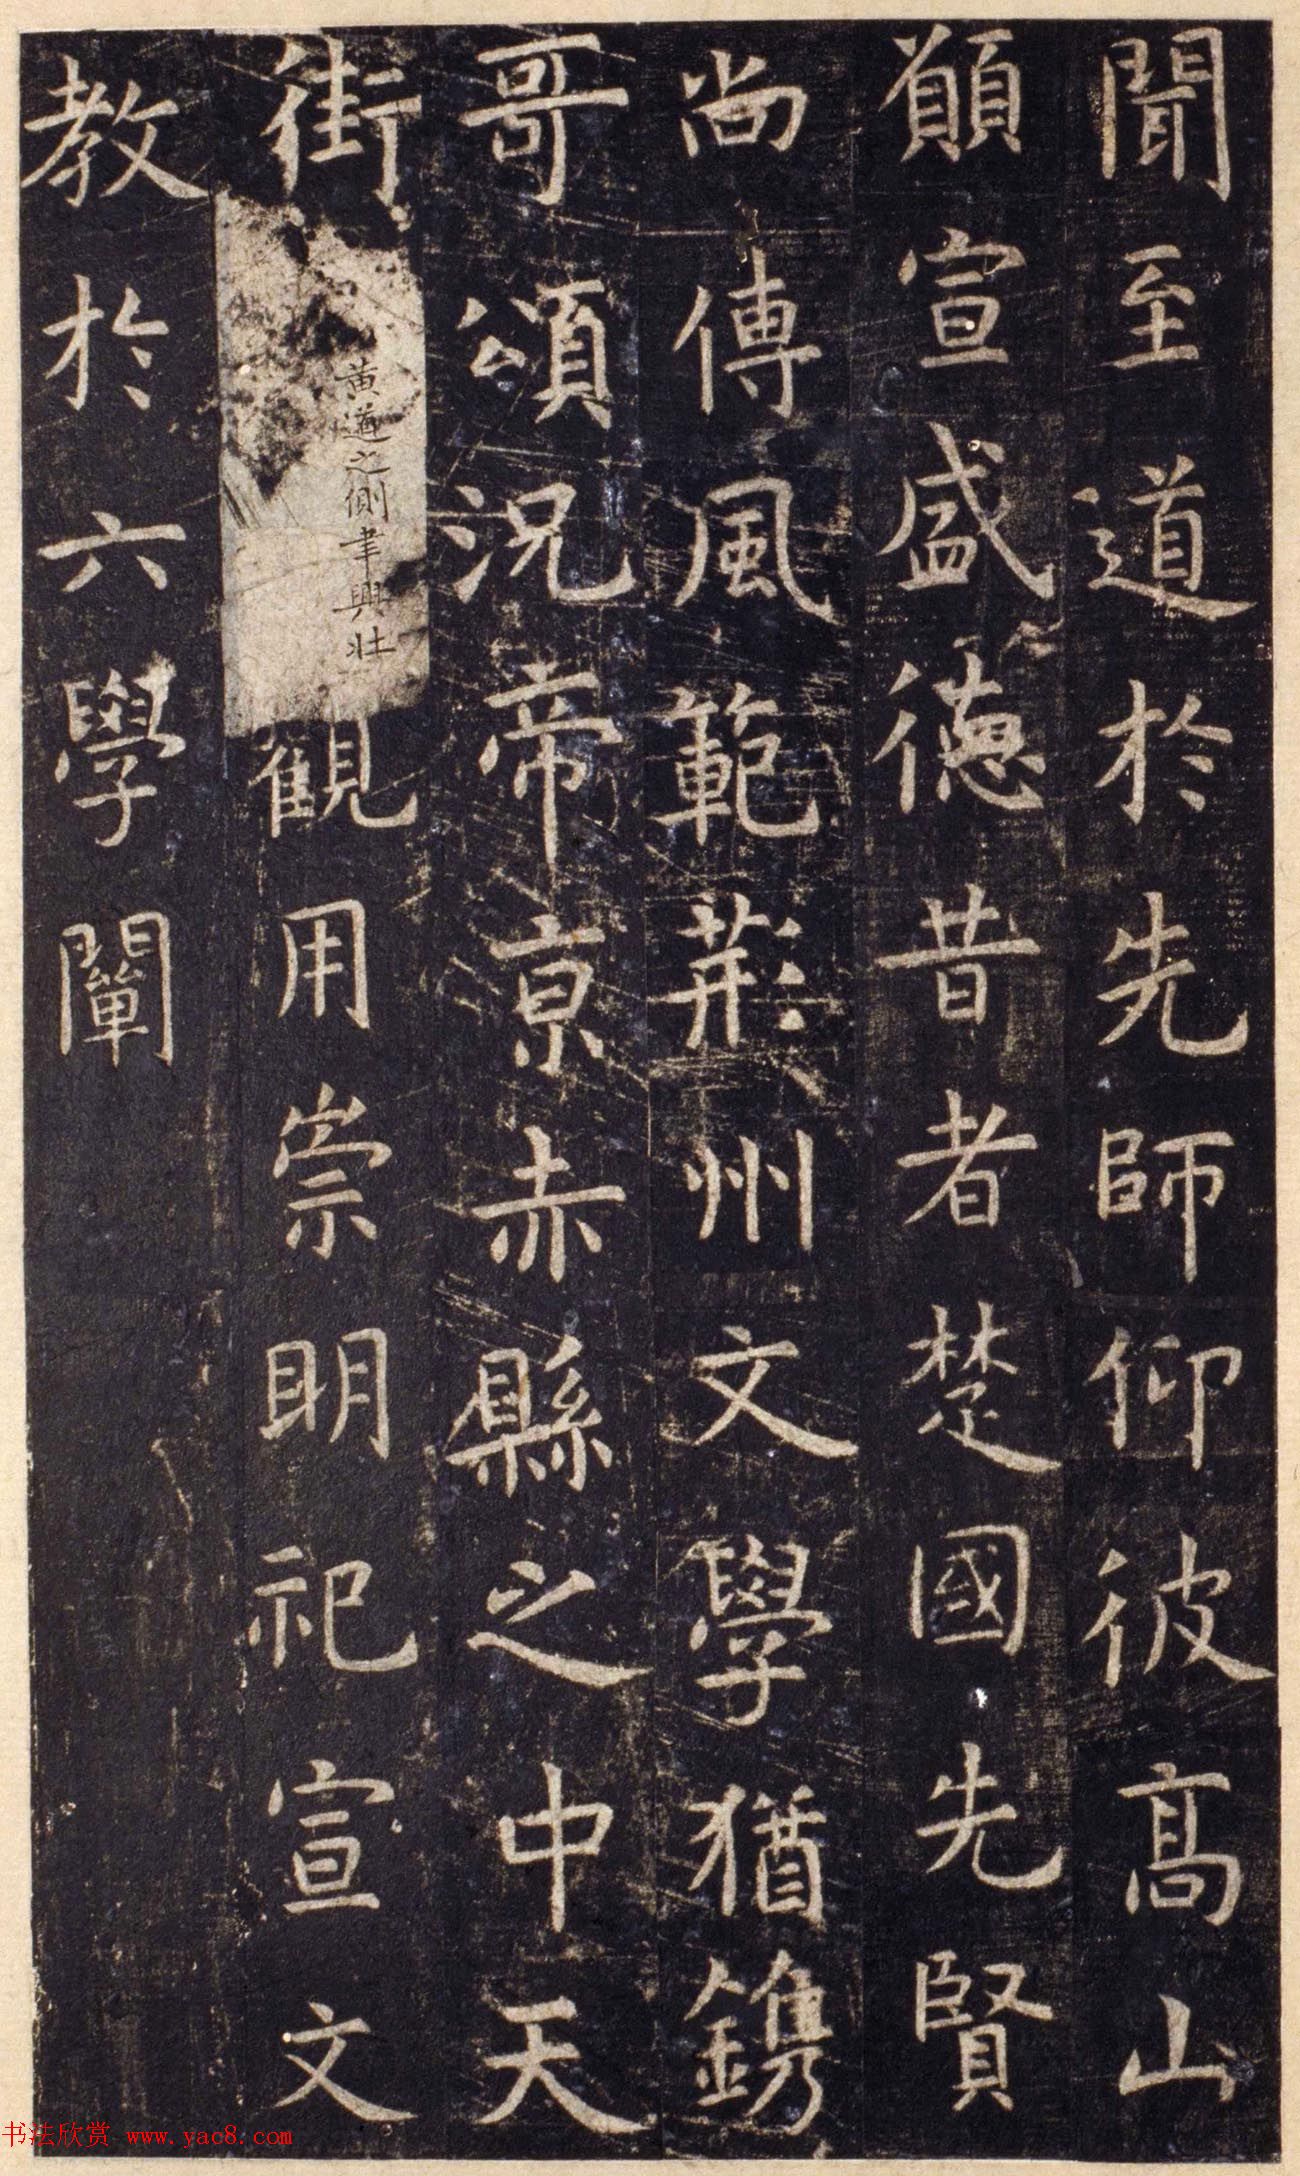 聞至道於先師仰彼高山
願宣盛德昔者楚國先賢
尚傳風範荊州文學猶鐫
哥頌況帝京赤縣之中天
街
黃道之側聿興壯
觀用崇明祀宣文
教於六學闡
书法欣赏 www.yac8.com